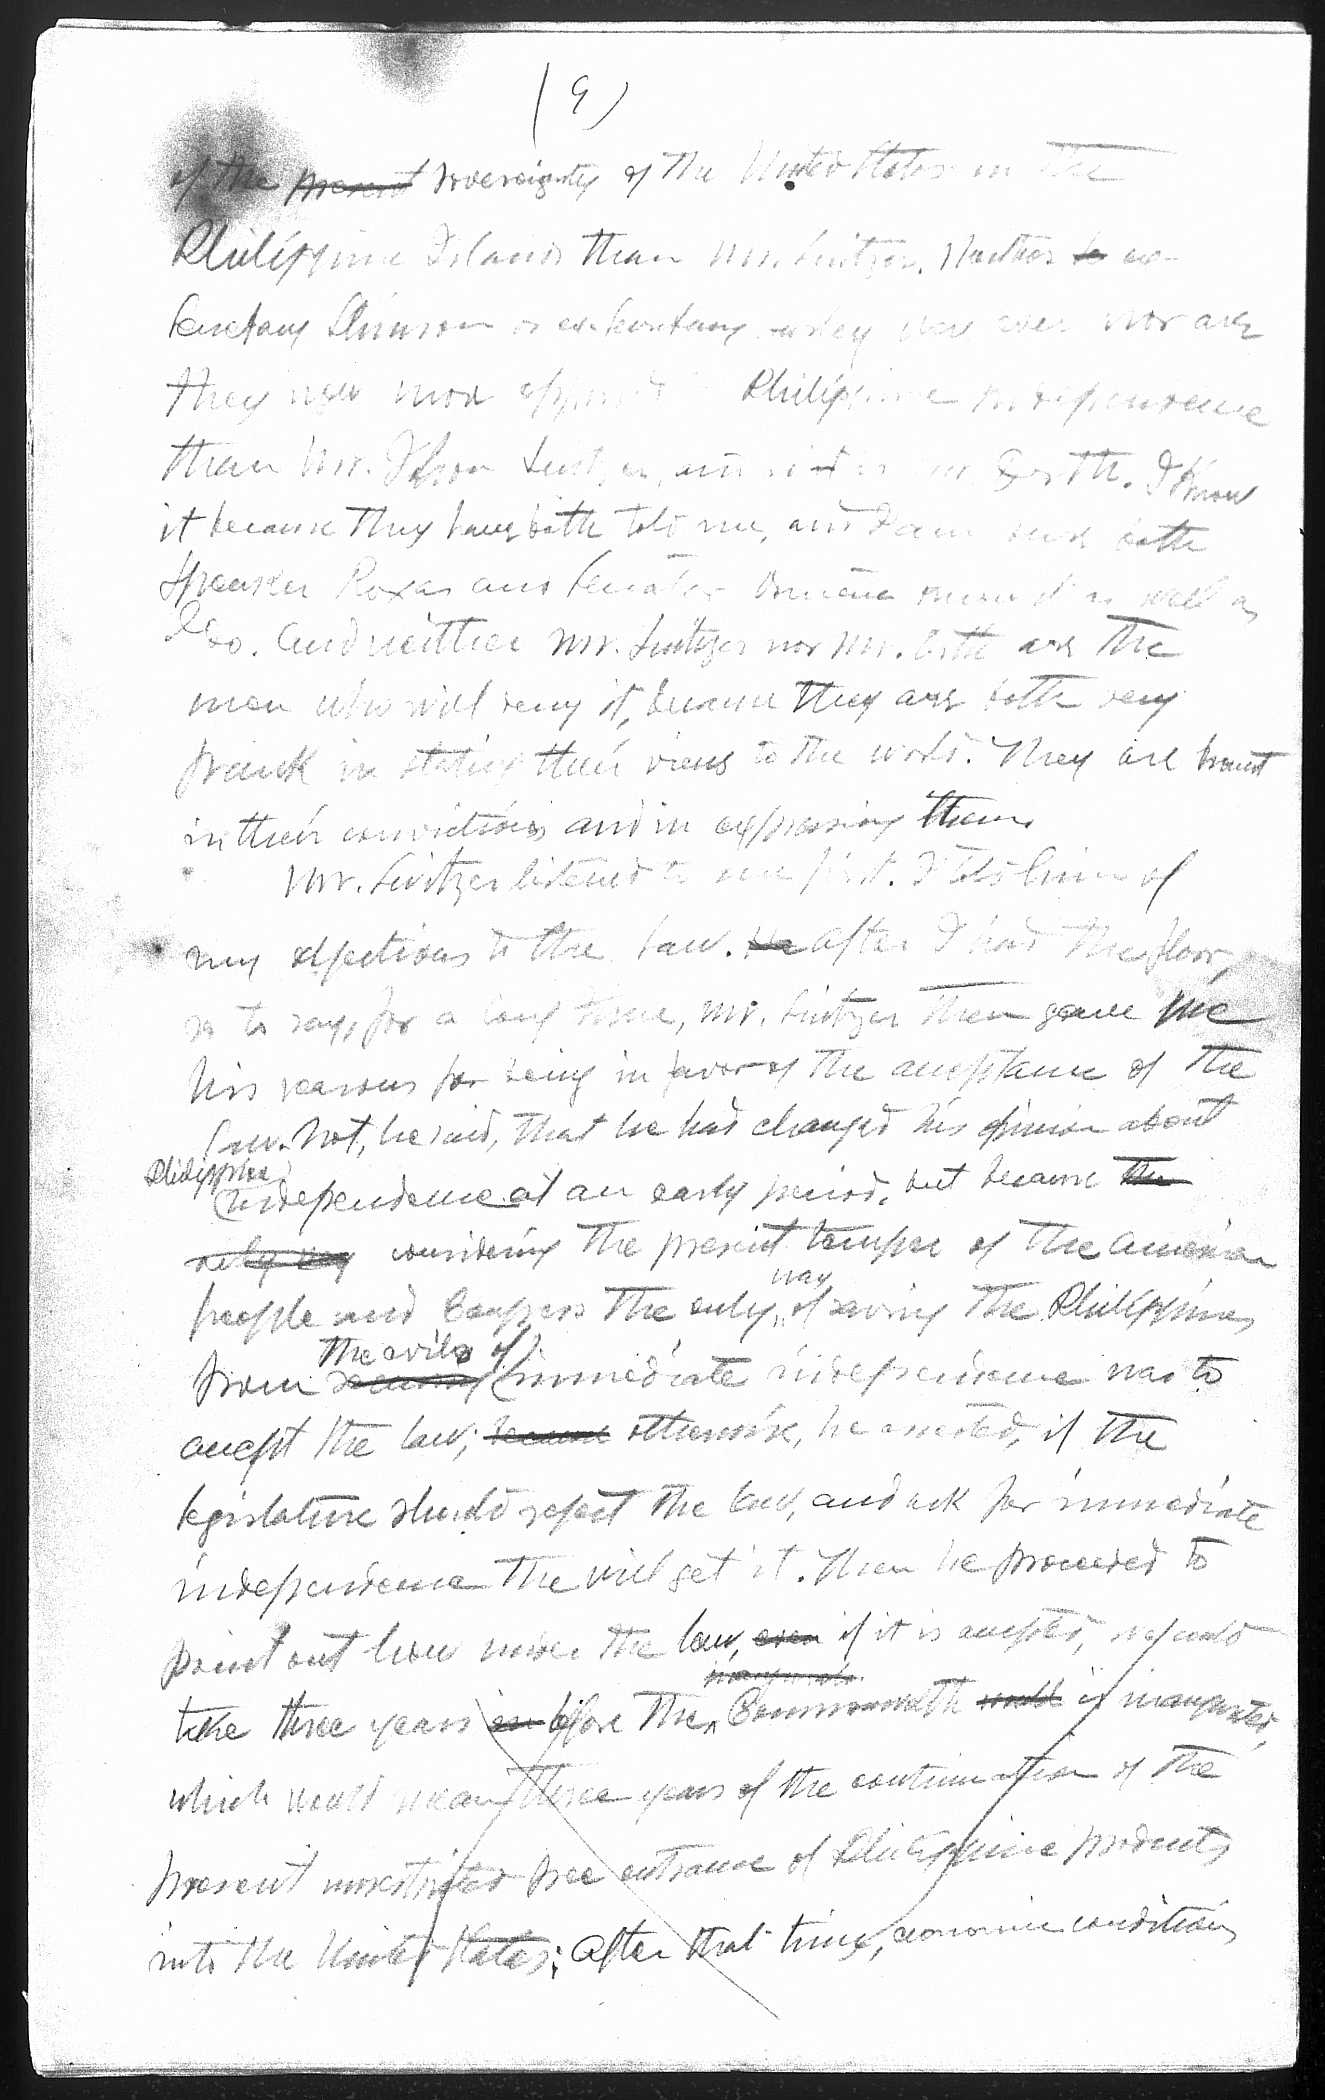 (9)
of the present sovereignty of the United States in the
Philippine Islands than Mr. Switzer. Neither to ex-
Secretary Stimson or ex-Secretary Hurley was ever nor are
they now more opposed Philippine independence
than Mr. Switzer, and so is Mr. Orth. I know
it because they have both told me, and I am sure both
Speaker Roxas and Senator Osmeña know it as well as
I do. And neither Mr. Switzer nor Mr. Orth are the
men who will deny it, because they are both very
frank in stating their views to the world. They are honest
in their convictions and in expressing them.
Mr. Switzer listened to me first. I told him of
my objections to the law. He After I had the floor,
so to say, for a long time, Mr. Switzer then gave me
his reasons for being in favor of the acceptance of the
law. Not, he said, that he had changed his opinion about
Philippine
independence at an early period, but because the
only way considering the present temper of the American
way
people and Congress the only of saving the Philippines
the evils of
from immediate independence was to
accept the law; because otherwise, he asserted, if the
legislature should reject the law, and ask for immediate
independence the will get it. Then he proceeded to
point out how under the law, even if it is accepted, it would
inaugurate
take three years before the Commonwealth could is inaugurated,
which would mean three years of the continuation of the
present unrestricted free entrance of Philippine products
into the United States; After that time, economic conditions